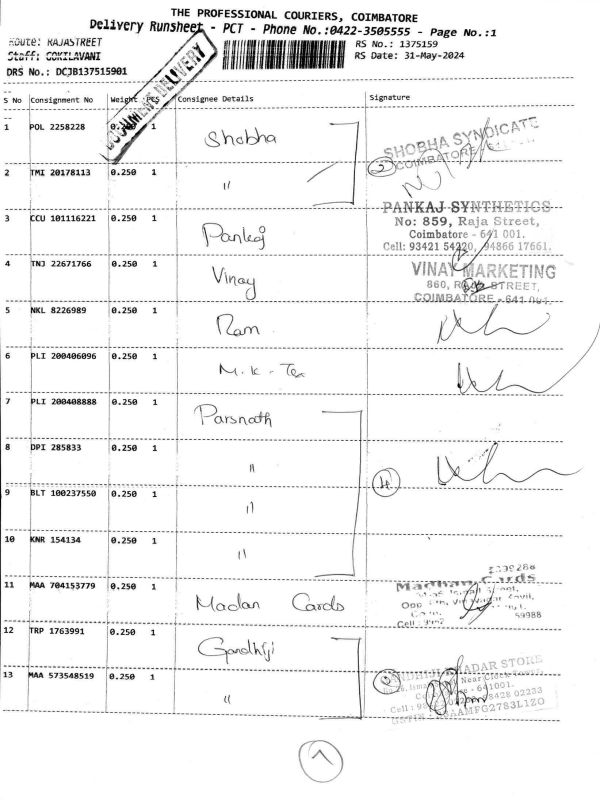 THE PROFESSIONAL COURIERS, COIMBATORE
Delivery Runsheet - PCT - Phone No.:0422-3505555 - Page No.:1
Route: RAJASTREET
RS No.: 1375159
Staff: GOKILAVANI
RS Date: 31-May-2024
DRS No.: DCJB137515901
DOCUMENT DELIVERY
S No Consignment No Weight PCS Consignee Details Signature
1 POL 2258228 1 Shobha
SHOBHA SYNDICATE
COIMBATORE
2 TMI 20178113 0.250 1 "
PANKAJ SYNTHETICS
No: 859, Raja Street,
Coimbatore - 641 001.
Cell: 93421 54220, 94866 17661.
3 CCU 101116221 0.250 1 Pankaj
4 TNJ 22671766 0.250 1 Vinay
VINAY MARKETING
860, STREET,
COIMBATORE - 641 001.
5 NKL 8226989 0.250 1 Ram
6 PLI 200406096 0.250 1 M.K - Tex
7 PLI 200408888 0.250 1 Parsnath
8 DPI 285833 0.250 1 "
4
9 BLT 100237550 0.250 1 "
10 KNR 154134 0.250 1 "
11 MAA 704153779 0.250 1 Madan Cards
Madhan Cards
59988
12 TRP 1763991 0.250 1 Gandhiji
13 MAA 573548519 0.250 1 "
KHADAR STORE
Near Clock Tower
- 641001.
98428 02233